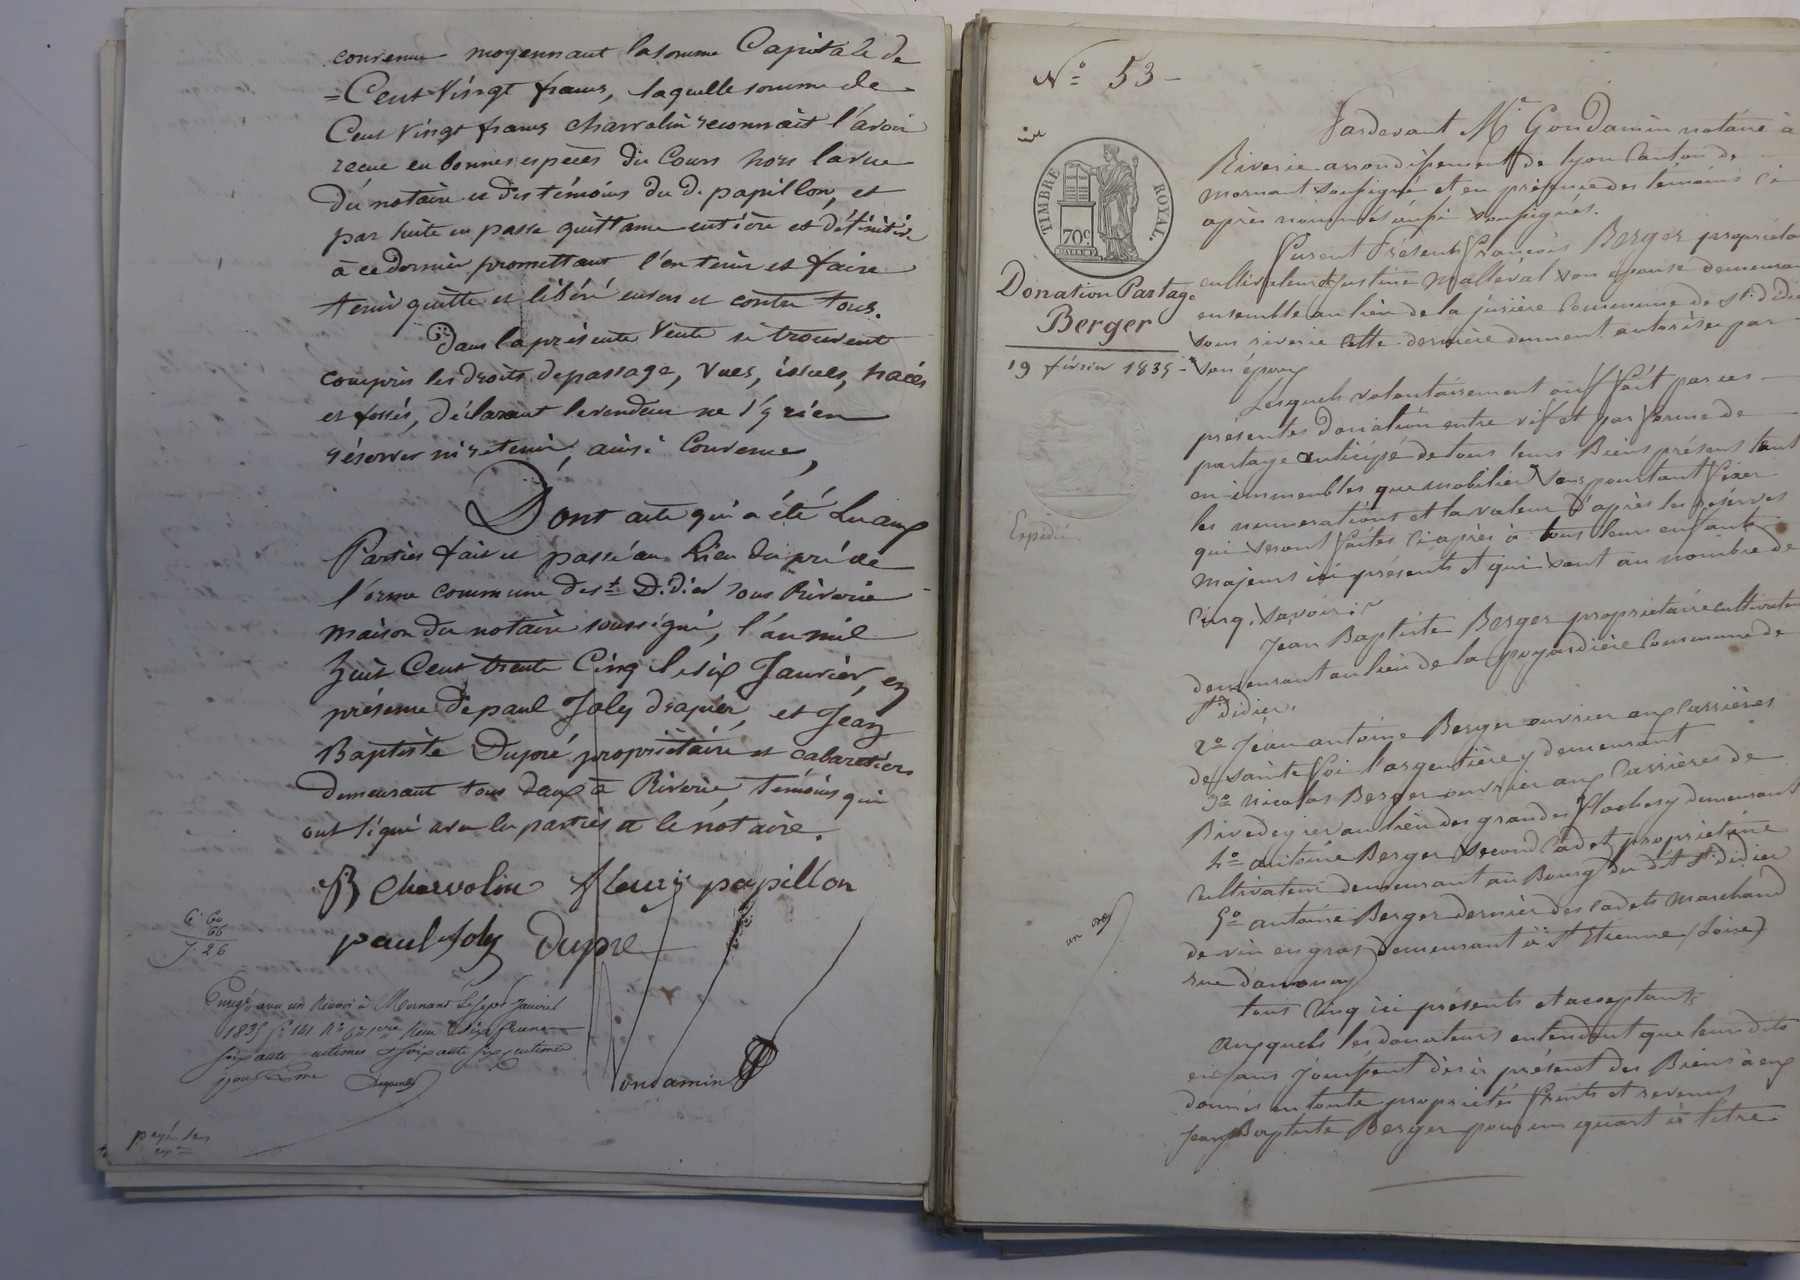 convenu moyennant la somme Capitale de
= Cent Vingt francs, laquelle somme de
Cent Vingt francs charvolin reconnait l'avoir
recue en bonnes espèces du Cours hors la vue
du notaire et des témoins du d. papillon, et
par suite en passe quittance entière et définitive
à ce dernier promettant l'en tenir et faire
tenir quitte et libéré envers et contre tous.
Dans la présente Vente se trouvent
compris les droits de passage, vues, issues, haies
et fossés, déclarant le vendeur ne s'y rien
réserver ni retenir, ainsi Convenu,
Dont acte qui a été lu aux
Parties fait et passé au lieu du pré de
l'orme commune de St Didier sous Riverie
maison du notaire soussigné, l'an mil
huit Cent trente Cinq le six Janvier, en
présence de paul Joly drapier, et Jean
Baptiste Dupré propriétaire et cabaretier
demeurant tous deux à Riverie, témoins qui
ont signé avec les parties et le notaire.
Charvolin fleury papillon
paul Joly Dupré
6. 60
66
7. 26
Enregé avec un Renvoi à Mornant le sept Janvier
1835 fo 141 Ro
soixante centimes soixante six centimes
pour
Gondamin
No 53
TIMBRE ROYAL.
70c
Donation Partage
Berger
19 février 1835
Expédié
Pardevant Me Gondamin notaire à
Riverie arrondissement de Lyon Canton de
mornant soussigné et en présence des témoins Ci
après nommés aussi soussignés.
Furent Présents françois Berger propriétai
cultivateur et Justine Malleval son épouse demeuran
ensemble au lieu de la jusière Commune de St didie
sous riverie cette dernière dument autorisée par
son époux
Lesquels volontairement ont fait par ces
présentes Donation entre vif et par forme de
partage anticipé de tous leurs Biens présens tant
en immeubles que mobilier sans pourtant fixer
les numerations et la valeur d'après les réserves
qui seront faites Ci après à tous leurs enfants
majeurs ici présents et qui sont au nombre de
Cinq, savoir:
Jean Baptiste Berger propriétaire cultivateu
demeurant au lieu de la poyardière Commune de
St didier.
2o Jean antoine Berger ouvrier aux Carrières
de sainte foi l'argentière y demeurant
3o Nicolas Berger ouvrier aux Carrières de
Rive de gier au lieu des grandes flaches y demeurant
4o antoine Berger second Cadet propriétaire
Cultivateur demeurant au Bourg du dit St didier
5o antoine Berger dernier des Cadets marchand
de vin en gros demeurant à St Etienne (Loire)
rue d'annonay
tous Cinq ici présents et acceptants
Auxquels les donateurs entendent que leurs dits
enfans jouissent dès à présent des Biens à eux
donnés en toute propriétés fruits et revenus
Jean Baptiste Berger pour un quart à titre